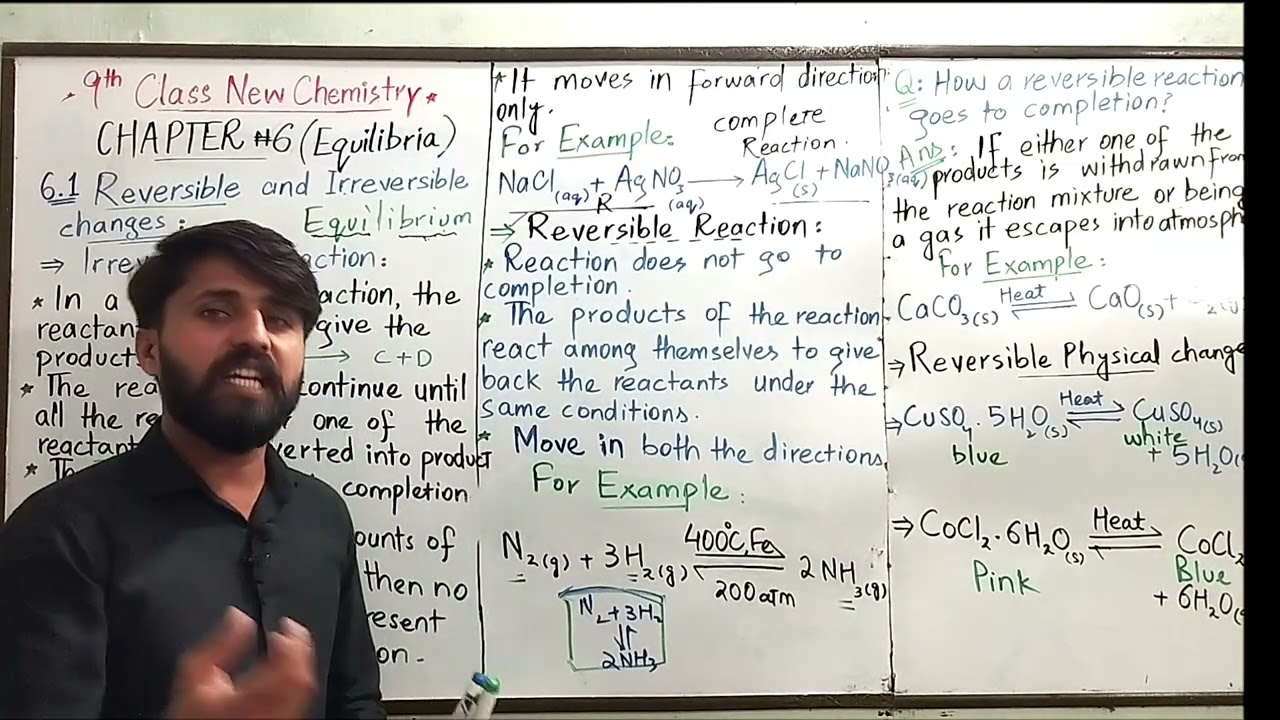 9th Class New Chemistry
CHAPTER #6 (Equilibria)
6.1 Reversible and Irreversible
changes:
Equilibrium
⇒ Irrev action:
* In a action, the
reactan give the
product → C+D
* The rea continue until
all the re one of the
reactant verted into product
* Th
completion
ounts of
then no
resent
on.
* It moves in forward direction
only.
For Example:
complete
Reaction.
NaCl(aq) + AgNO3(aq) → AgCl(s) + NaNO3(aq)
R
⇒ Reversible Reaction:
* Reaction does not go to
completion.
* The products of the reaction
react among themselves to give
back the reactants under the
same conditions.
* Move in both the directions
For Example:
N2(g) + 3H2(g) ⇌ 2NH3(g)
400°C, Fe
200 atm
N2+3H2
⇌
2NH3
Q: How a reversible reaction
goes to completion?
Ans: If either one of the
products is withdrawn from
the reaction mixture or being
a gas it escapes into atmosph
For Example:
Heat
CaCO3(s) ⇌ CaO(s) +
⇒ Reversible Physical change
Heat
⇒ CuSO4.5H2O(s) ⇌ CuSO4(s)
blue white
+ 5H2O(
Heat
⇒ CoCl2.6H2O(s) ⇌ CoCl2
Pink Blue
+ 6H2O(